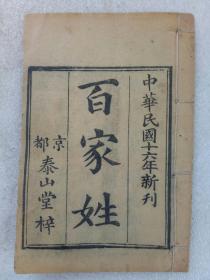 中華民國十六年新刊
百家姓
京都泰山堂梓